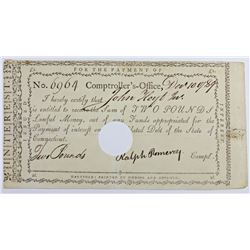 FOR THE PAYMENT OF
INTEREST
No. 6964 Comptroller's-Office, Decr 10 1789
I hereby certify that John Hoyt Jur.
is entitled to receive the Sum of TWO POUNDS
Lawful Money, out of any Funds appropriated for the
Payment of Interest on State Debt of the State of
Connecticut.
Two Pounds Ralph Pomeroy Compt.
HARTFORD: PRINTED BY HUDSON AND GOODWIN.